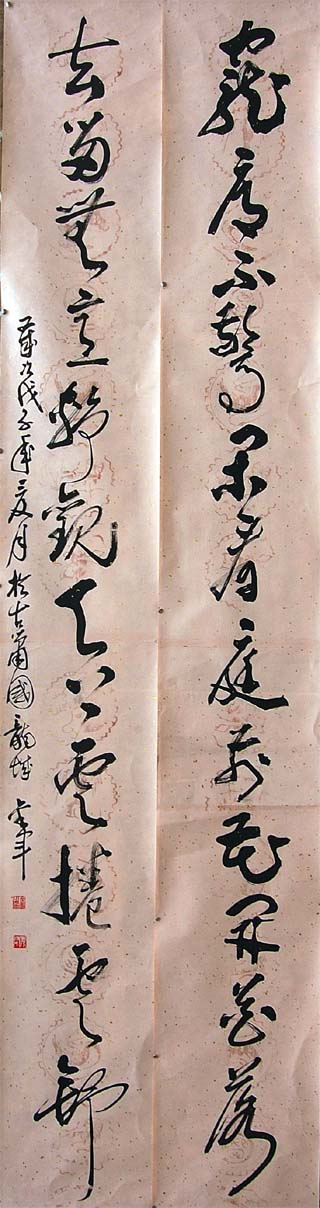 寵辱不驚閑看庭前花開花落
去留無意静觀天上雲捲雲舒
歲次戊子年夏月於古蕭國龍城